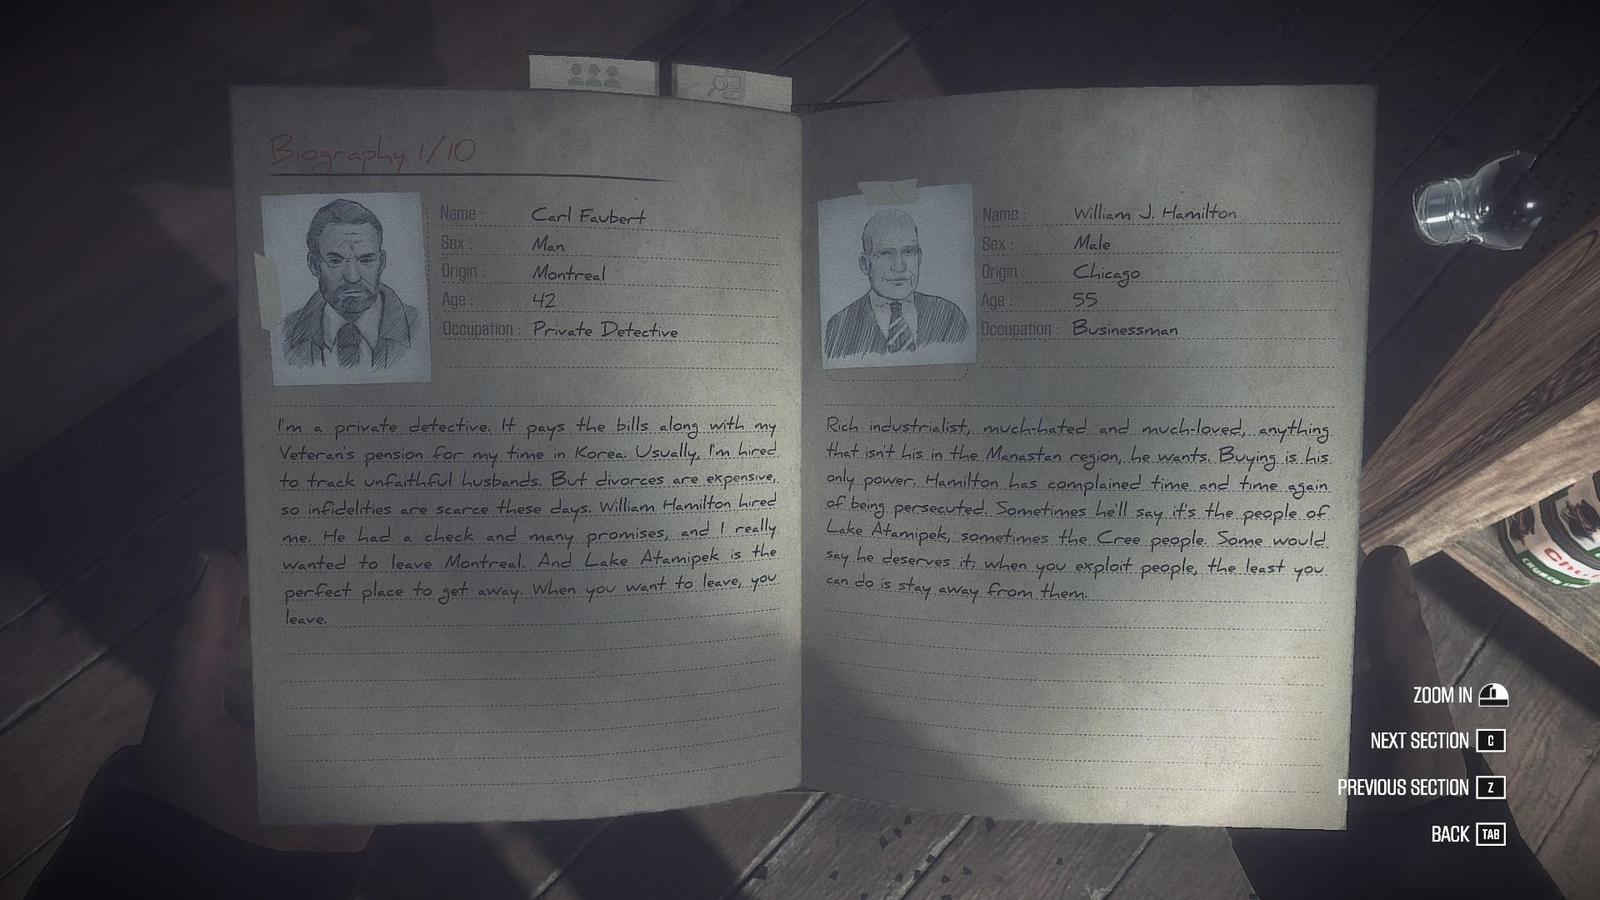 Biography 1/10
Name : Carl Faubert
Sex : Man
Origin : Montreal
Age : 42
Occupation : Private Detective
I'm a private detective. It pays the bills along with my
Veteran's pension for my time in Korea. Usually, I'm hired
to track unfaithful husbands. But divorces are expensive,
so infidelities are scarce these days. William Hamilton hired
me. He had a check and many promises, and I really
wanted to leave Montreal. And Lake Atamipek is the
perfect place to get away. When you want to leave, you
leave.
Name : William J. Hamilton
Sex : Male
Origin : Chicago
Age : 55
Occupation : Businessman
Rich industrialist, much-hated and much-loved, anything
that isn't his in the Manastan region, he wants. Buying is his
only power. Hamilton has complained time and time again
of being persecuted. Sometimes he'll say it's the people of
Lake Atamipek, sometimes the Cree people. Some would
say he deserves it: when you exploit people, the least you
can do is stay away from them.
ZOOM IN
NEXT SECTION C
PREVIOUS SECTION Z
BACK TAB